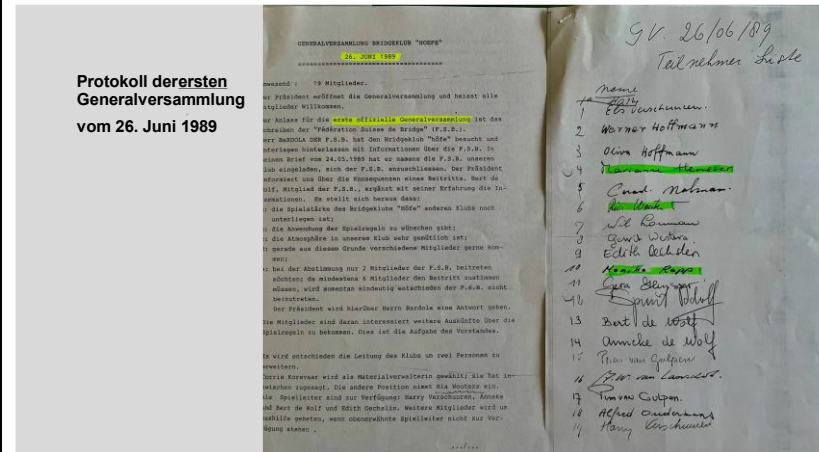 Protokoll derersten
Generalversammlung
vom 26. Juni 1989
GENERALVERSAMMLUNG BRIDGEKLUB "HOEFE"
26. JUNI 1989
wesend : 19 Mitglieder.
er Präsident eröffnet die Generalversammlung und heisst alle
itglieder Willkommen.
er Anlass für die erste offizielle Generalversammlung ist das
chreiben der "Fédération Suisse de Bridge" (F.S.B.).
err BARDOLA DER F.S.B. hat den Bridgeklub "höfe" besucht und
nterlagen hinterlassen mit Informationen über die F.S.B. In
einen Brief vom 24.05.1989 hat er namens die F.S.B. unseren
lub eingeladen, sich der F.S.B. anzuschliessen. Der Präsident
nformiert uns über die Konsequenzen eines Beitritts. Bert de
olf, Mitglied der F.S.B., ergänzt mit seiner Erfahrung die In-
ormationen. Es stellt sich heraus dass:
die Spielstärke des Bridgeklubs "Höfe" anderen Klubs noch
unterliegen ist;
die Anwendung der Spielregeln zu wünschen gibt;
die Atmosphäre in unserem Klub sehr gemütlich ist;
gerade aus diesem Grunde verschiedene Mitglieder gerne kom-
men;
bei der Abstimmung nur 2 Mitglieder der F.S.B. beitreten
möchten; da mindestens 6 Mitglieder den Beitritt zustimmen
müssen, wird momentan eindeutig entschieden der F.S.B. nicht
beizutreten.
Der Präsident wird hierüber Herrn Bardola eine Antwort geben.
Die Mitglieder sind daran interessiert weitere Auskünfte über die
pielregeln zu bekommen. Dies ist die Aufgabe des Vorstandes.
s wird entschieden die Leitung des Klubs um zwei Personen zu
rweitern.
orrie Korevaar wird als Materialverwalterin gewählt; sie hat in-
wischen zugesagt. Die andere Position nimmt Ria Wouters ein.
ls Spielleiter sind zur Verfügung: Harry Verschuren, Anneke
nd Bert de Wolf und Edith Oechslin. Weitere Mitglieder wird um
ushilfe gebeten, wenn obenerwähnte Spielleiter nicht zur Ver-
ügung stehen .
GV. 26/06/89
Teilnehmer Liste
name
1 Els Verschuuren.
2 Werner Hoffmann
3 Hoffmann
4 Marianne
5
6
7 Wil
8 Gerrit Westera
9 Edith Oechslin
10 Monika Rapp
11
12
13 Bert de Wolf
14 Anneke de Wolf
15 van Gulpen
16 van
17 van Gulpen.
18 Alfred
19 Harry Verschuuren